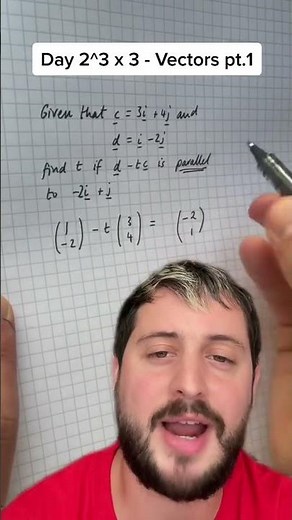 Day 2^3 x 3 - Vectors pt.1
Given that c = 3i + 4j and
d = i - 2j
find t if d - tc is parallel
to -2i + j
(1 -2) - t (3 4) = (-2 1)